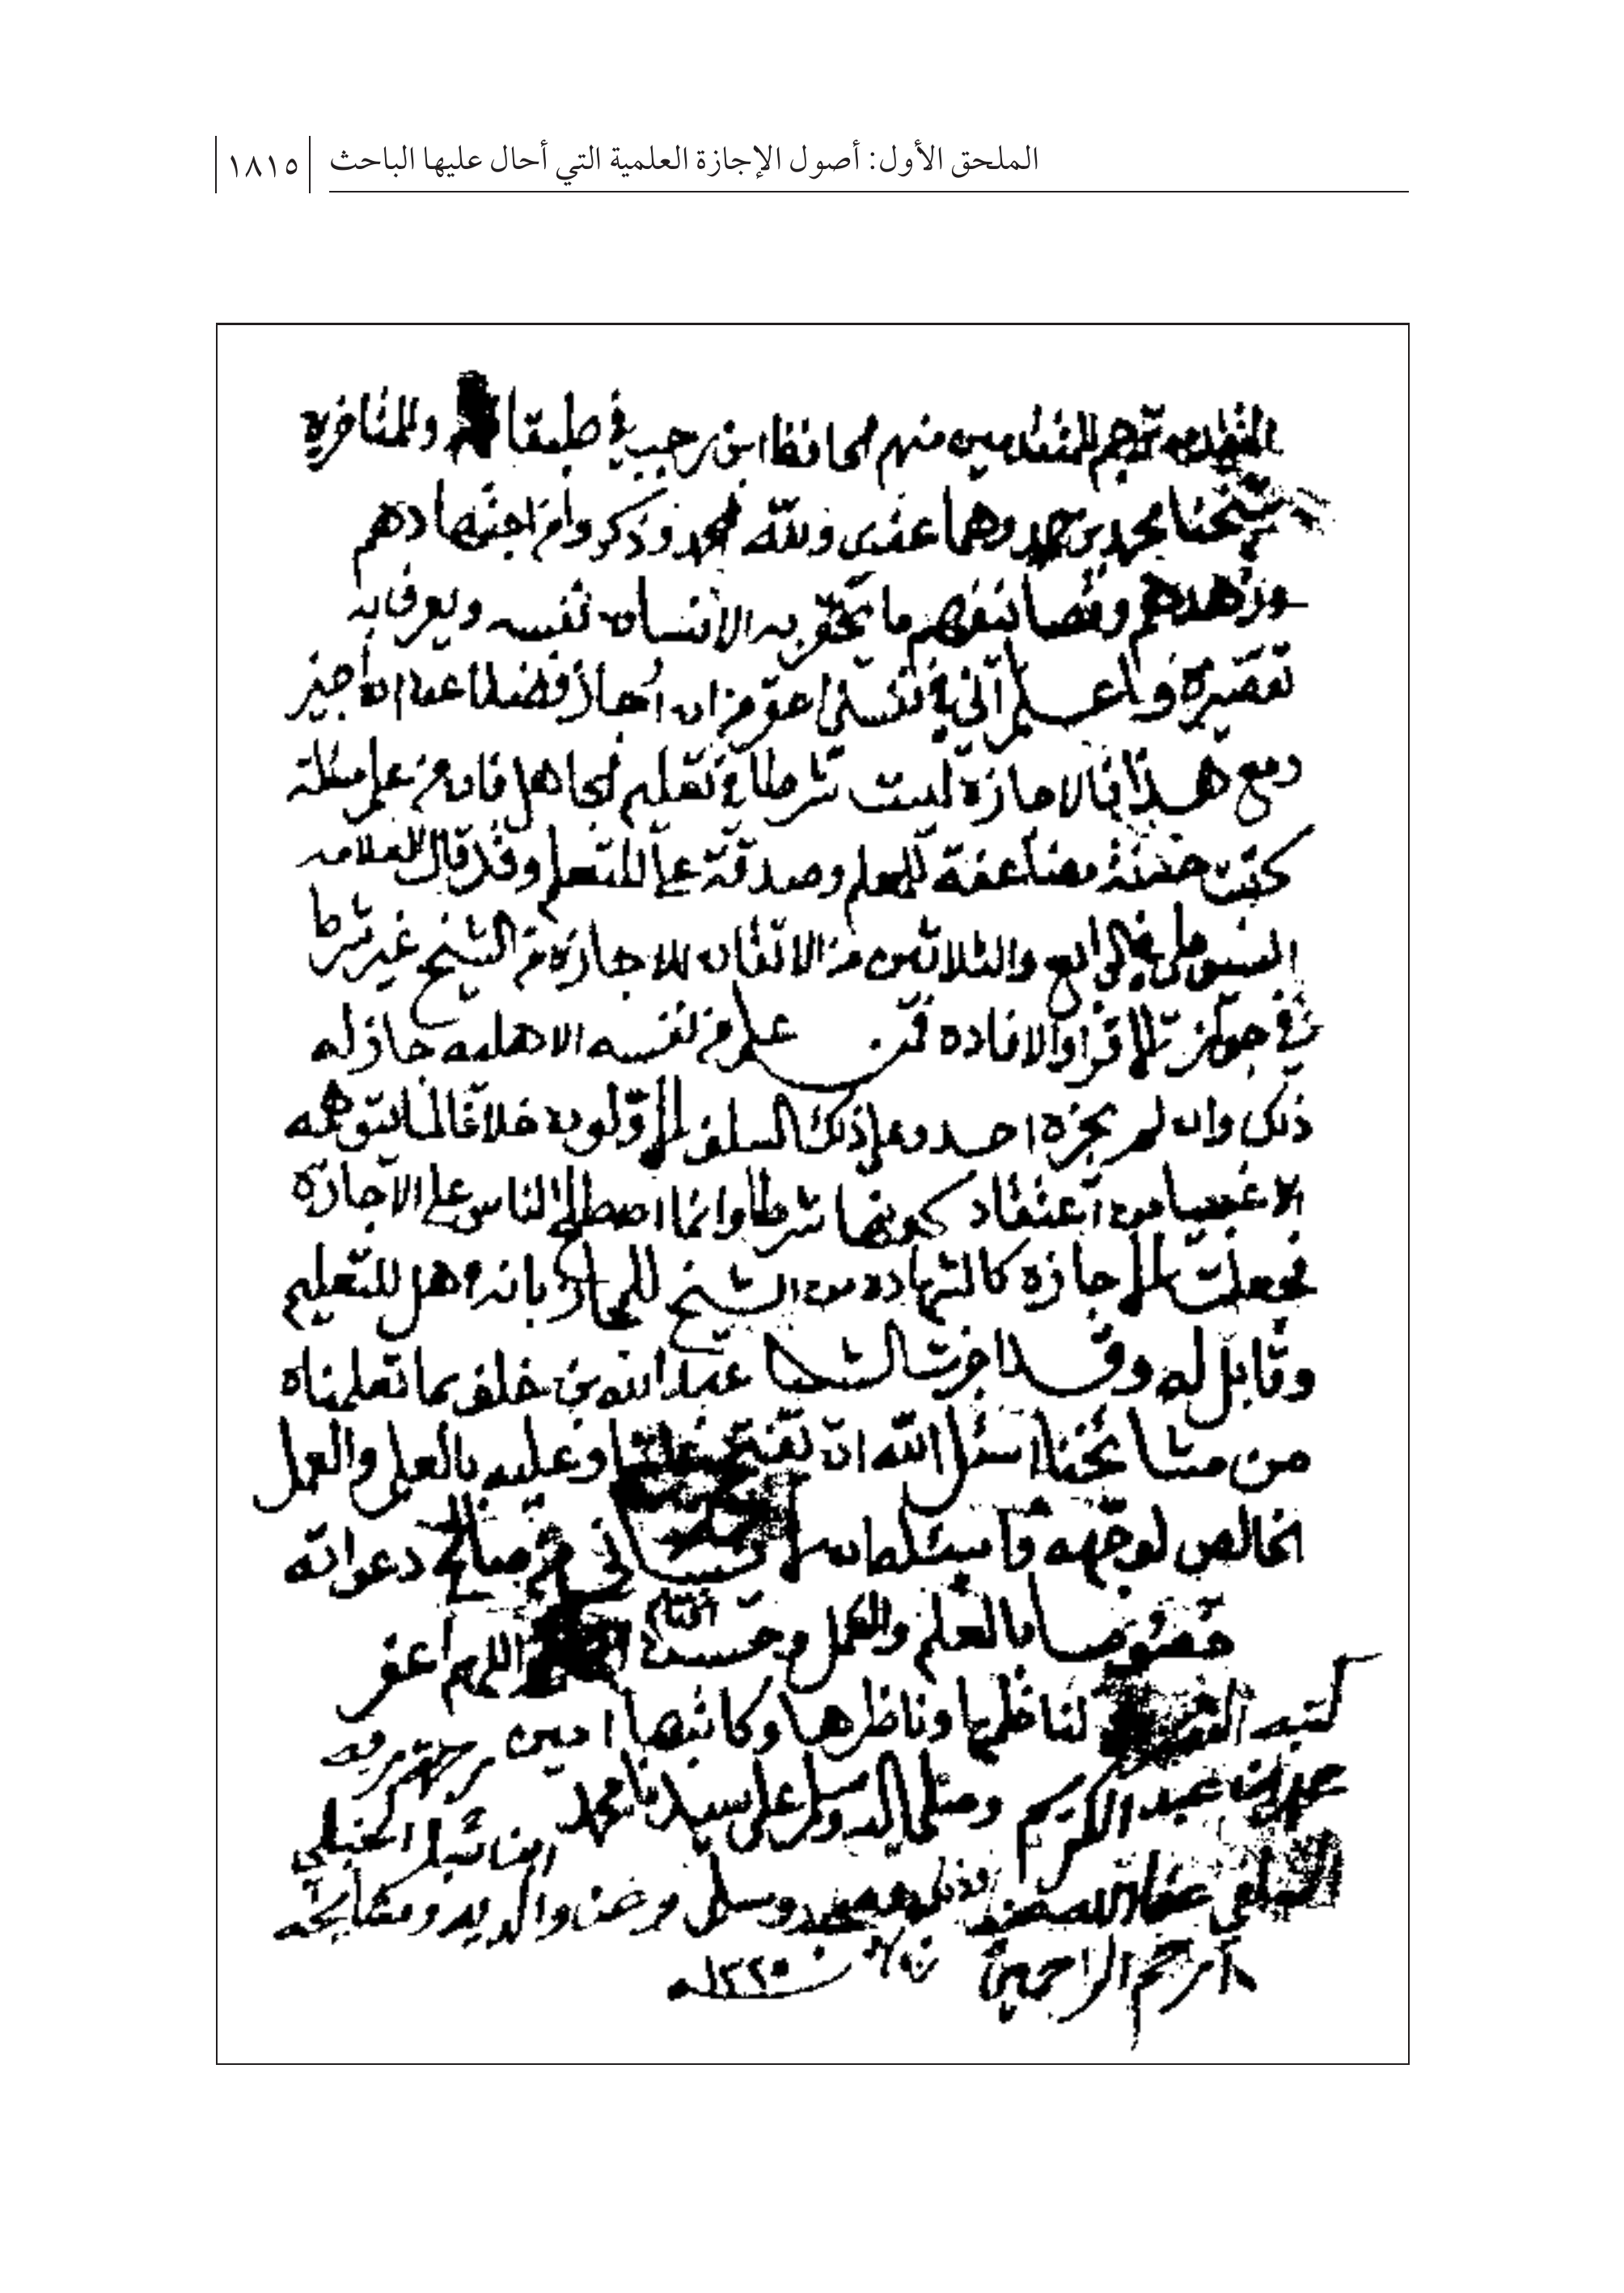 الملحق الأول: أصول الإجازة العلمية التي أحال عليها الباحث
١٨١٥
ترجم المتقدمين منهم الحافظ ابن رجب في طبقاته وللمتأخرين
شيخنا محمد بن حمد وهما عندي ولله الحمد وذكروا من اجتهادهم
وزهدهم وتصانيفهم ما يحتقر به الانسان نفسه ويعرف به
تقصيره واعلم اني في نفسي احقر من ان اُجاز فضلا عن ان اجيز
ومع هذا فالاجازة ليست شرطا في تعليم الجاهل فان من علم مسئلة
كتبت حسنة مضاعفة للمعلم وصدقة على المتعلم وقد قال العلامه
السيوطي في الرابع والثلاثين من الاتقان الاجازة من الشيخ غير شرط
في جواز الاقراء والافاده فمن علم من نفسه الاهليه جاز له
ذلك وان لم يجزه احد وعلى ذلك السلف الاولون خلافا لما يتوهمه
الاغبياء من اعتقاد كونها شرطا وانما اصطلح الناس على الاجازة
فجعلت الاجازة كالشهادة من الشيخ للمجاز بانه اهل للتعليم
وقابل له وقد اجزت الشيخ عبد الله بن خلف بما تعلمناه
من مشايخنا اسئل الله ان يفتح علينا وعليه بالعلم والعمل
الخالص لوجهه واسئله ان لا ينساني من صالح دعواته
خصوصا بالعلم والعمل وحسن الختام اللهم اغفر
لناظمها وناظرها وكاتبها امين
كتبه الفقير
عبد الكريم وصلى الله وسلم على سيدنا محمد
ابن شبل الحنبلي
السلفي عفا الله عنه وصحبه وسلم وعن والديه ومشايخه
ارحم الراحمين